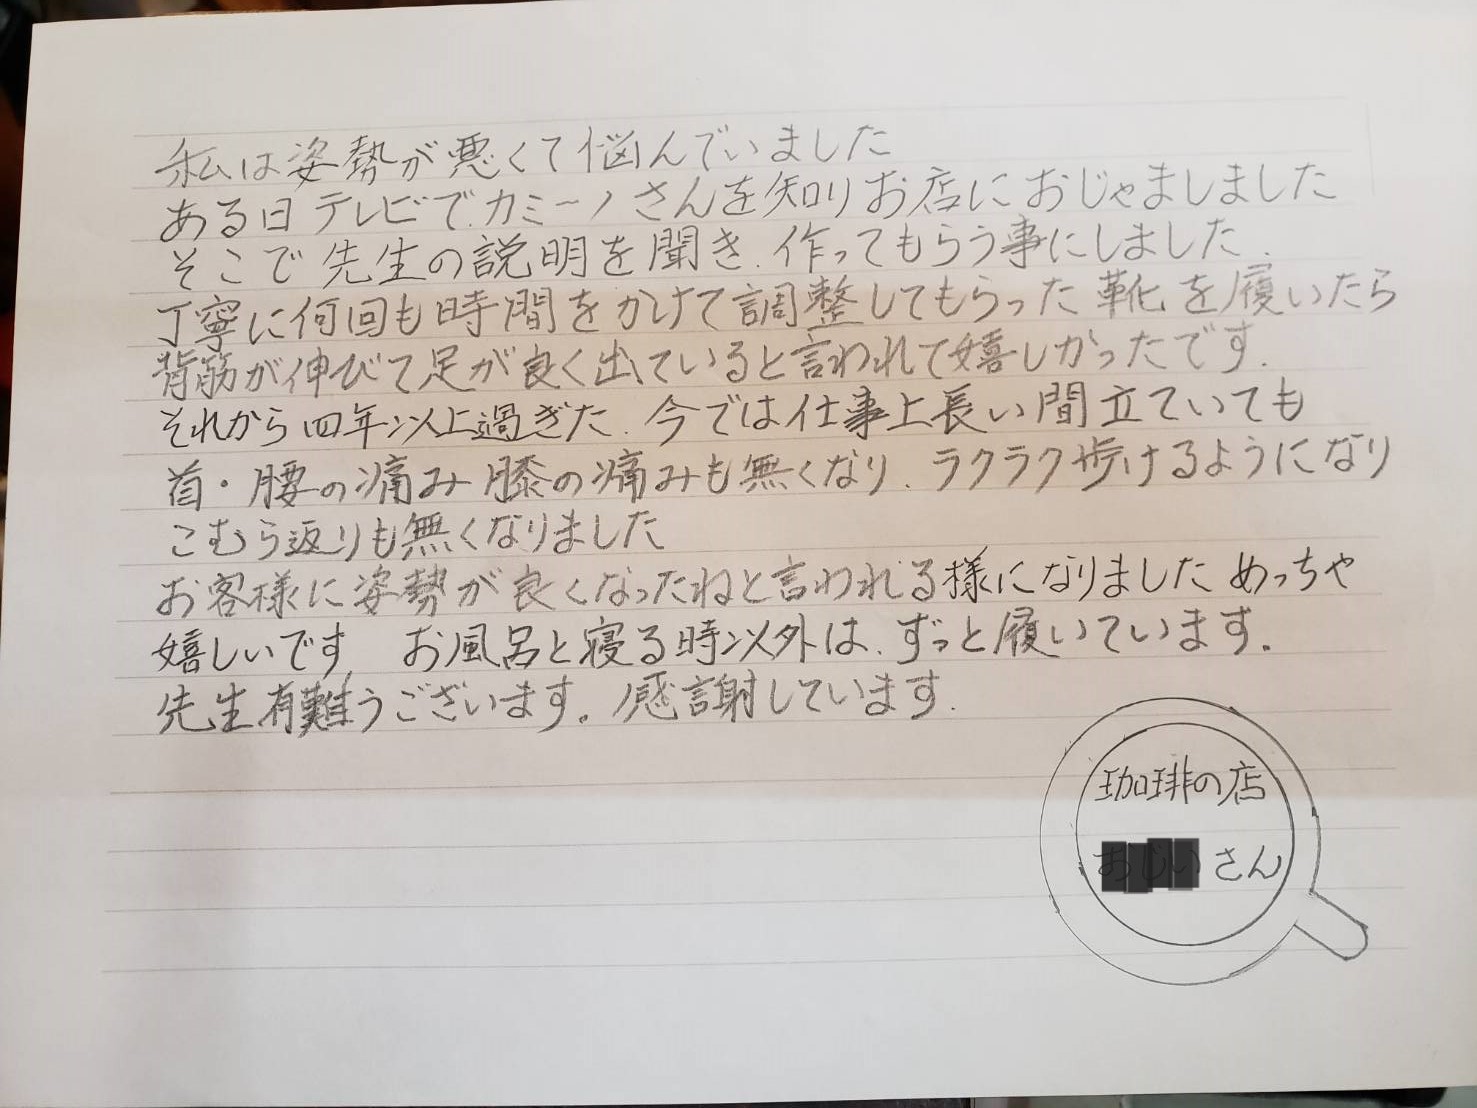 私は姿勢が悪くて悩んでいました
ある日テレビで、カミーノさんを知りお店におじゃましました
そこで先生の説明を聞き、作ってもらう事にしました。
丁寧に何回も時間をかけて調整してもらった靴を履いたら
背筋が伸びて足が良く出ていると言われて嬉しかったです。
それから四年以上過ぎた、今では仕事上長い間立ていても
首・腰の痛み膝の痛みも無くなり、ラクラク歩けるようになり
こむら返りも無くなりました
お客様に姿勢が良くなったねと言われる様になりましためっちゃ
嬉しいです お風呂と寝る時以外は、ずっと履いています。
先生有難うございます。感謝しています。
珈琲の店
さん